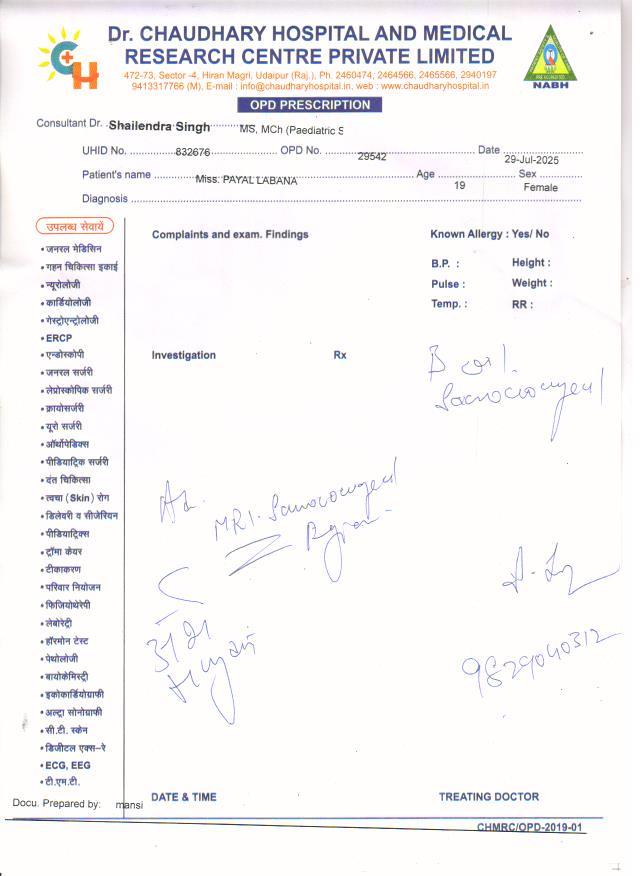 Dr. CHAUDHARY HOSPITAL AND MEDICAL
RESEARCH CENTRE PRIVATE LIMITED
472-73, Sector -4, Hiran Magri, Udaipur (Raj.), Ph. 2460474, 2464566, 2465566, 2940197
9413317766 (M), E-mail : info@chaudharyhospital.in, web : www.chaudharyhospital.in
CH
PRE ACCREDITED
NABH
OPD PRESCRIPTION
Consultant Dr. Shailendra Singh MS, MCh (Paediatric S
UHID No. 832676 OPD No. 29542 Date 29-Jul-2025
Patient's name Miss. PAYAL LABANA Age 19 Sex Female
Diagnosis
उपलब्ध सेवायें
• जनरल मेडिसिन
• गहन चिकित्सा इकाई
• न्यूरोलॉजी
• कार्डियोलॉजी
• गेस्ट्रोएन्ट्रोलॉजी
• ERCP
• एन्डोस्कोपी
• जनरल सर्जरी
• लेप्रोस्कोपिक सर्जरी
• क्रायोसर्जरी
• यूरो सर्जरी
• ऑर्थोपेडिक्स
• पीडियाट्रिक सर्जरी
• दंत चिकित्सा
• त्वचा (Skin) रोग
• डिलेवरी व सीजेरियन
• पीडियाट्रिक्स
• ट्रॉमा केयर
• टीकाकरण
• परिवार नियोजन
• फिजियोथेरेपी
• लेबोरेट्री
• हॉरमोन टेस्ट
• पेथोलॉजी
• बायोकेमिस्ट्री
• इकोकार्डियोग्राफी
• अल्ट्रा सोनोग्राफी
• सी.टी. स्केन
• डिजीटल एक्स-रे
• ECG, EEG
• टी.एम.टी.
Complaints and exam. Findings
Known Allergy : Yes/ No
B.P. : Height :
Pulse : Weight :
Temp. : RR :
Investigation Rx
Sacrococcygeal
Ad.
MRI. Sacrococcygeal
Region
9829040312
Docu. Prepared by: mansi
DATE & TIME TREATING DOCTOR
CHMRC/OPD-2019-01